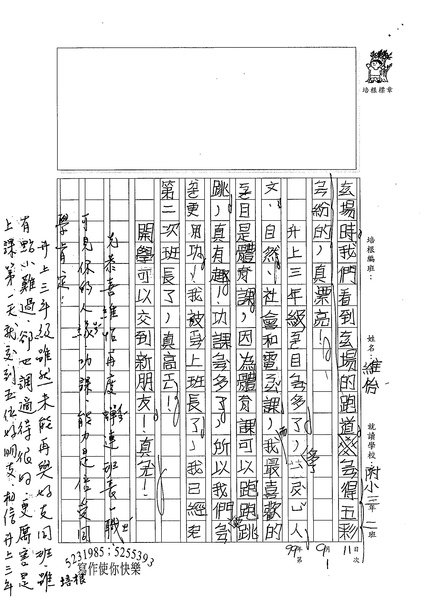 培根標章
培根編班：
姓名：維怡
就讀學校：附小三年二班
99年9月11日
第1次
玄場時我們看到玄場的跑道变得五彩
繽紛的，真漂亮！
升上三年級科目多了，
文、自然、社會和電玄課，我最喜歡的
科目是體育課，因為體育課可以跑跑跳
跳，真有趣！功課多了，所以我們
更用功，我被
上班長了，我已經
第二次班長了，真高
開學可以交到新朋友！真
先恭喜維怡再度
連班長一職，
可見你的人緣、功課、能力是倍受同
學肯定！
升上三年級雖然未能再與好友同班，雖
有點小難過，卻也調適得很好，更厲害是
上課第一天就交到五位好朋友，相信升上三年
5231985；5255393
寫作使你快樂
培根